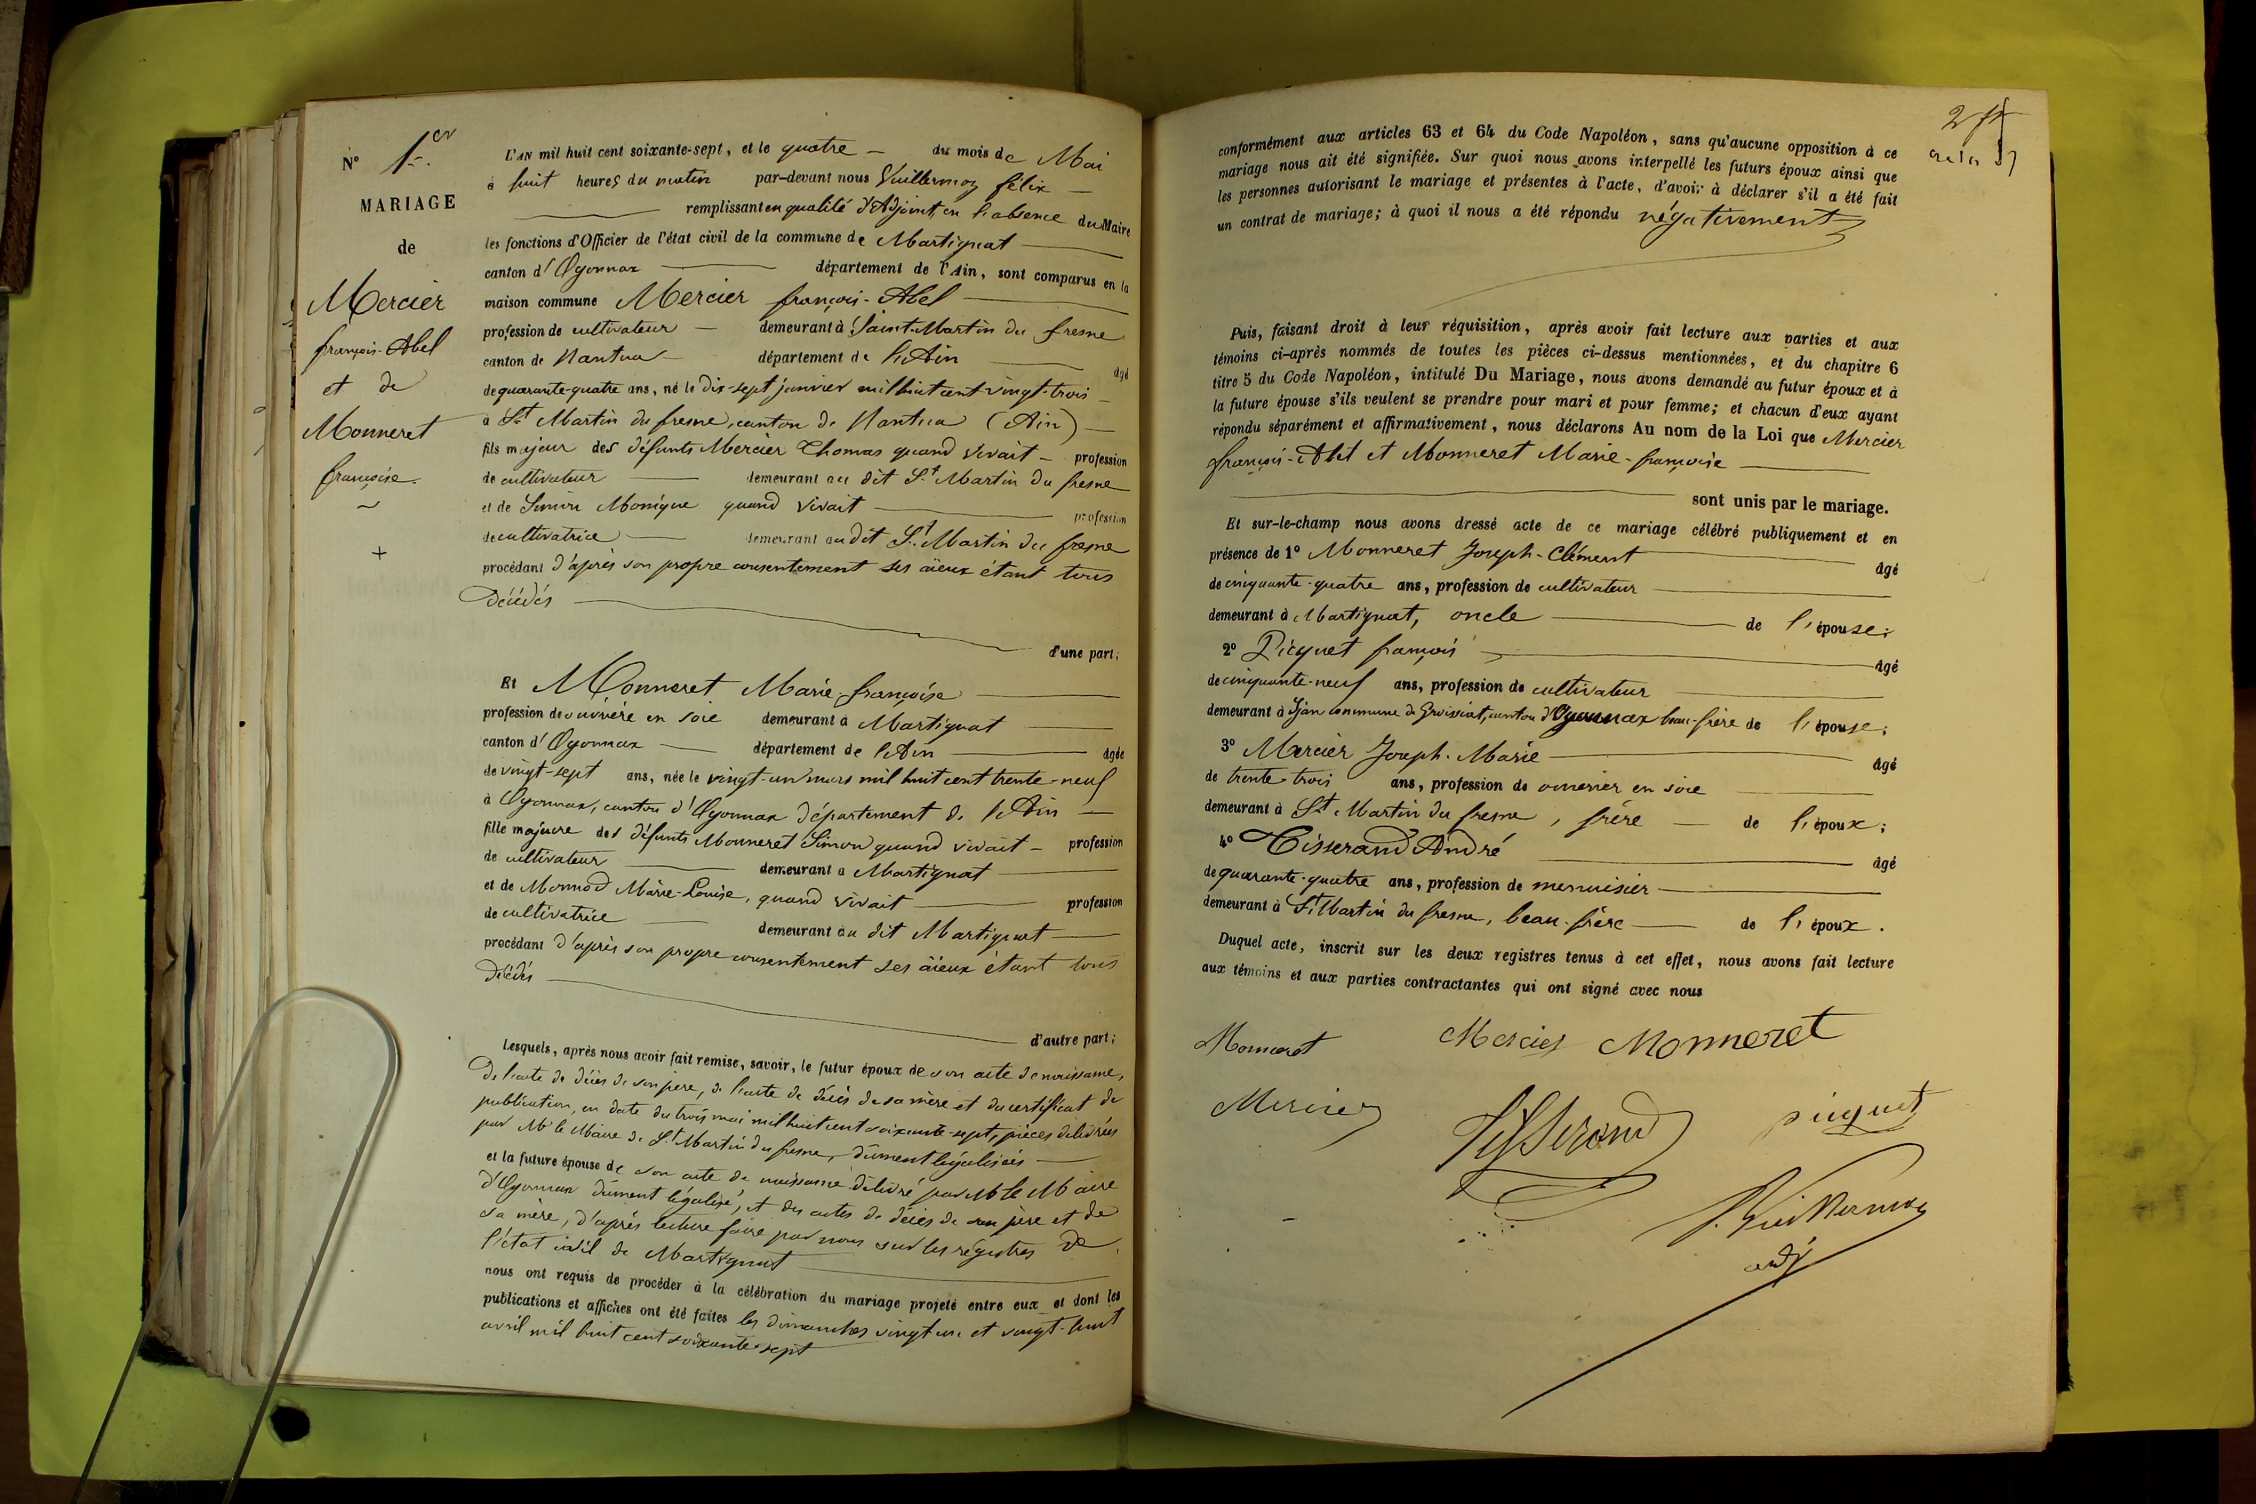 N° 1er
MARIAGE
de
Mercier
françois-Abel
et de
Monneret
françoise.
L'AN mil huit cent soixante-sept, et le quatre — du mois de Mai
à huit heures du matin par-devant nous Vuillermoz félix —
remplissant en qualité d'Adjoint, en l'absence du Maire
les fonctions d'Officier de l'état civil de la commune de Martignat
canton d'Oyonnax département de l'Ain, sont comparus en la
maison commune Mercier françois-Abel
profession de cultivateur — demeurant à Saint-Martin du fresne
canton de Nantua département de l'Ain âgé
de quarante-quatre ans, né le dix-sept janvier mil huit cent vingt-trois
à St Martin du fresne, canton de Nantua (Ain) —
fils majeur des défunts Mercier Thomas quand vivait — profession
de cultivateur demeurant au dit St Martin du fresne
et de Simon Monique quand vivait profession
de cultivatrice demeurant au dit St Martin du fresne
procédant d'après son propre consentement ses aïeux étant tous
décédés
d'une part;
Et Monneret Marie-françoise
profession de ouvrière en soie demeurant à Martignat
canton d'Oyonnax département de l'Ain âgée
de vingt-sept ans, née le vingt-un mars mil huit cent trente-neuf
à Oyonnax, canton d'Oyonnax département de l'Ain —
fille majeure des défunts Monneret Simon quand vivait — profession
de cultivateur demeurant à Martignat
et de Monnod Marie-Louise, quand vivait profession
de cultivatrice demeurant au dit Martignat
procédant d'après son propre consentement ses aïeux étant tous
décédés
d'autre part;
Lesquels, après nous avoir fait remise, savoir, le futur époux de son acte de naissance,
de l'acte de décès de son père, de l'acte de décès de sa mère et du certificat de
publication, en date du trois mai mil huit cent soixante-sept, pièces délivrées
par Mr le Maire de St Martin du fresne, dûment légalisées —
et la future épouse de son acte de naissance délivré par Mr le Maire
d'Oyonnax dûment légalisé, et des actes de décès de son père et de
sa mère, d'après lecture faire par nous sur les régistres de
l'état civil de Martignat
nous ont requis de procéder à la célébration du mariage projeté entre eux et dont les
publications et affiches ont été faites les dimanches vingt un et vingt-huit
avril mil huit cent soixante-sept
conformément aux articles 63 et 64 du Code Napoléon, sans qu'aucune opposition à ce
mariage nous ait été signifiée. Sur quoi nous avons interpellé les futurs époux ainsi que
les personnes autorisant le mariage et présentes à l'acte, d'avoir à déclarer s'il a été fait
un contrat de mariage; à quoi il nous a été répondu négativement
Puis, faisant droit à leur réquisition, après avoir fait lecture aux parties et aux
témoins ci-après nommés de toutes les pièces ci-dessus mentionnées, et du chapitre 6
titre 5 du Code Napoléon, intitulé Du Mariage, nous avons demandé au futur époux et à
la future épouse s'ils veulent se prendre pour mari et pour femme; et chacun d'eux ayant
répondu séparément et affirmativement, nous déclarons Au nom de la Loi que Mercier
françois-Abel et Monneret Marie-françoise
sont unis par le mariage.
Et sur-le-champ nous avons dressé acte de ce mariage célébré publiquement et en
présence de 1° Monneret Joseph-Clément âgé
de cinquante-quatre ans, profession de cultivateur
demeurant à Martignat, oncle de l'épouse;
2° Picquet françois âgé
de cinquante-neuf ans, profession de cultivateur
demeurant à Ijean commune de Groissiat, canton d'Oyonnax beau-frère de l'épouse;
3° Mercier Joseph-Marie âgé
de trente-trois ans, profession de ouvrier en soie
demeurant à St Martin du fresne, frère — de l'époux;
4° Tisserand André âgé
de quarante-quatre ans, profession de menuisier
demeurant à St Martin du fresne, beau-frère — de l'époux.
Duquel acte, inscrit sur les deux registres tenus à cet effet, nous avons fait lecture
aux témoins et aux parties contractantes qui ont signé avec nous
Monneret Mercier Monneret
Mercier Tisserand picquet
f. Vuillermoz
adj